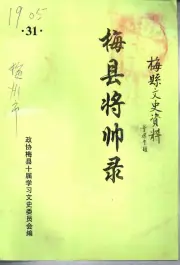 1905
·31·
梅县将帅录
梅縣文史資料
政协梅县十届学习文史委员会编